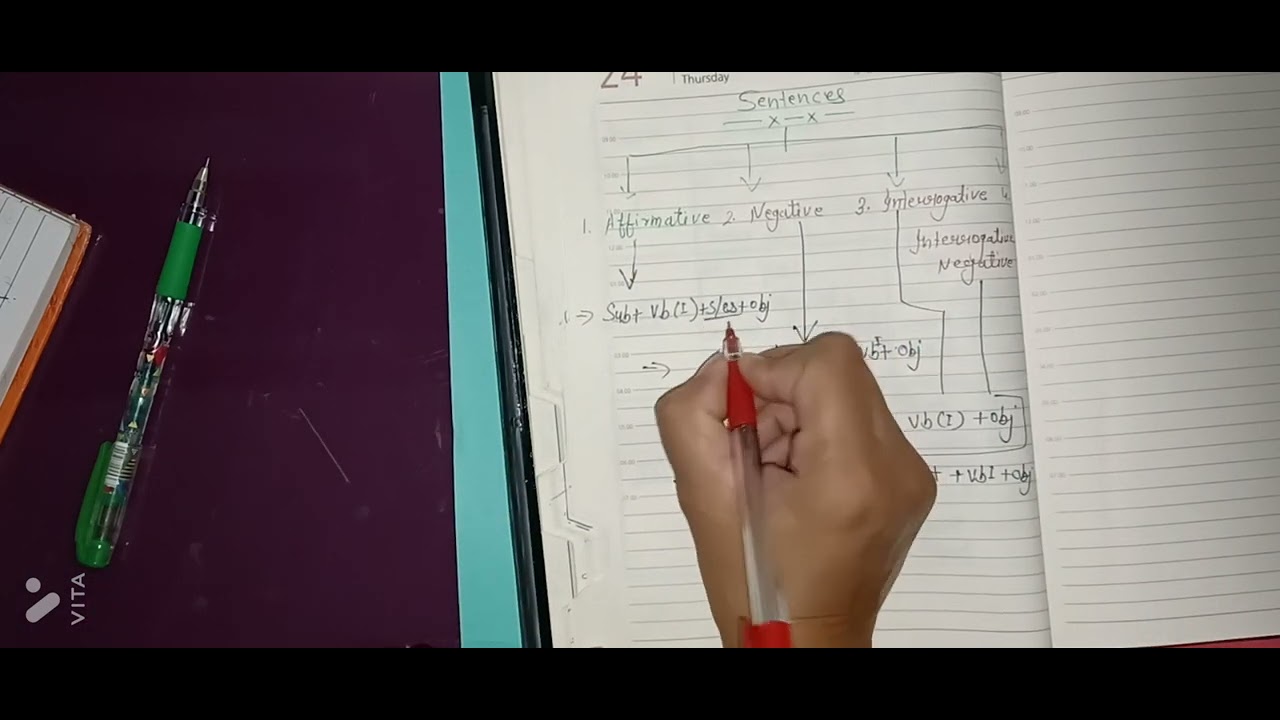 24 Thursday
Sentences
x x
1. Affirmative 2. Negative 3. Interrogative 4
Interrogative
Negative
1 => Sub+ Vb(I)+s/es+obj
+ obj
Vb(I) + obj
+ + VbI + obj
VITA